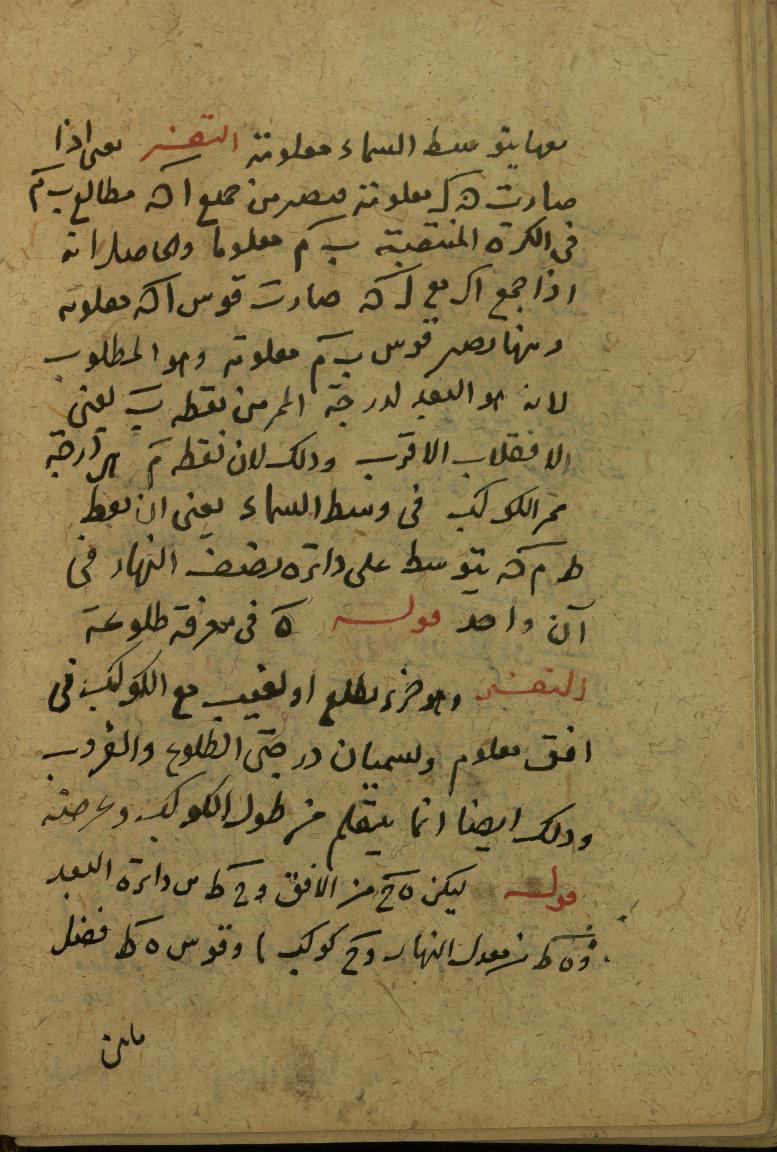 معها يتوسط السماء معلومة التفسير يعنى اذا
صارت ه ك معلومة فيصير من جميع ا ه مطالع ب م
فى الكرة المنتصبة ب م معلوما والحاصل انه
اذا جمع اك مع ك ه صارت قوس ا ه معلومة
ومنها يصير قوس ب م معلومة وهو المطلوب
لانه هو البعد لدرجة الممر من نقطه ب يعنى
الانقلاب الاقرب وذلك لان نقطه م هى درجة
ممر الكوكب فى وسط السماء يعنى ان نقط
ط م ه يتوسط على دائرة نصف النهار فى
آن واحد قوله ه فى معرفة طلوعه
التفسير وهو جزء يطلع او يغيب مع الكوكب فى
افق معلوم ويسميان درجتى الطلوع والغروب
وذلك ايضا انما يعلم من طول الكوكب وعرضه
قوله ليكن ه ح من الافق و ح ط من دائرة البعد
و ه ط من معدل النهار و ح كوكب ا وقوس ه ط فضل
مابين